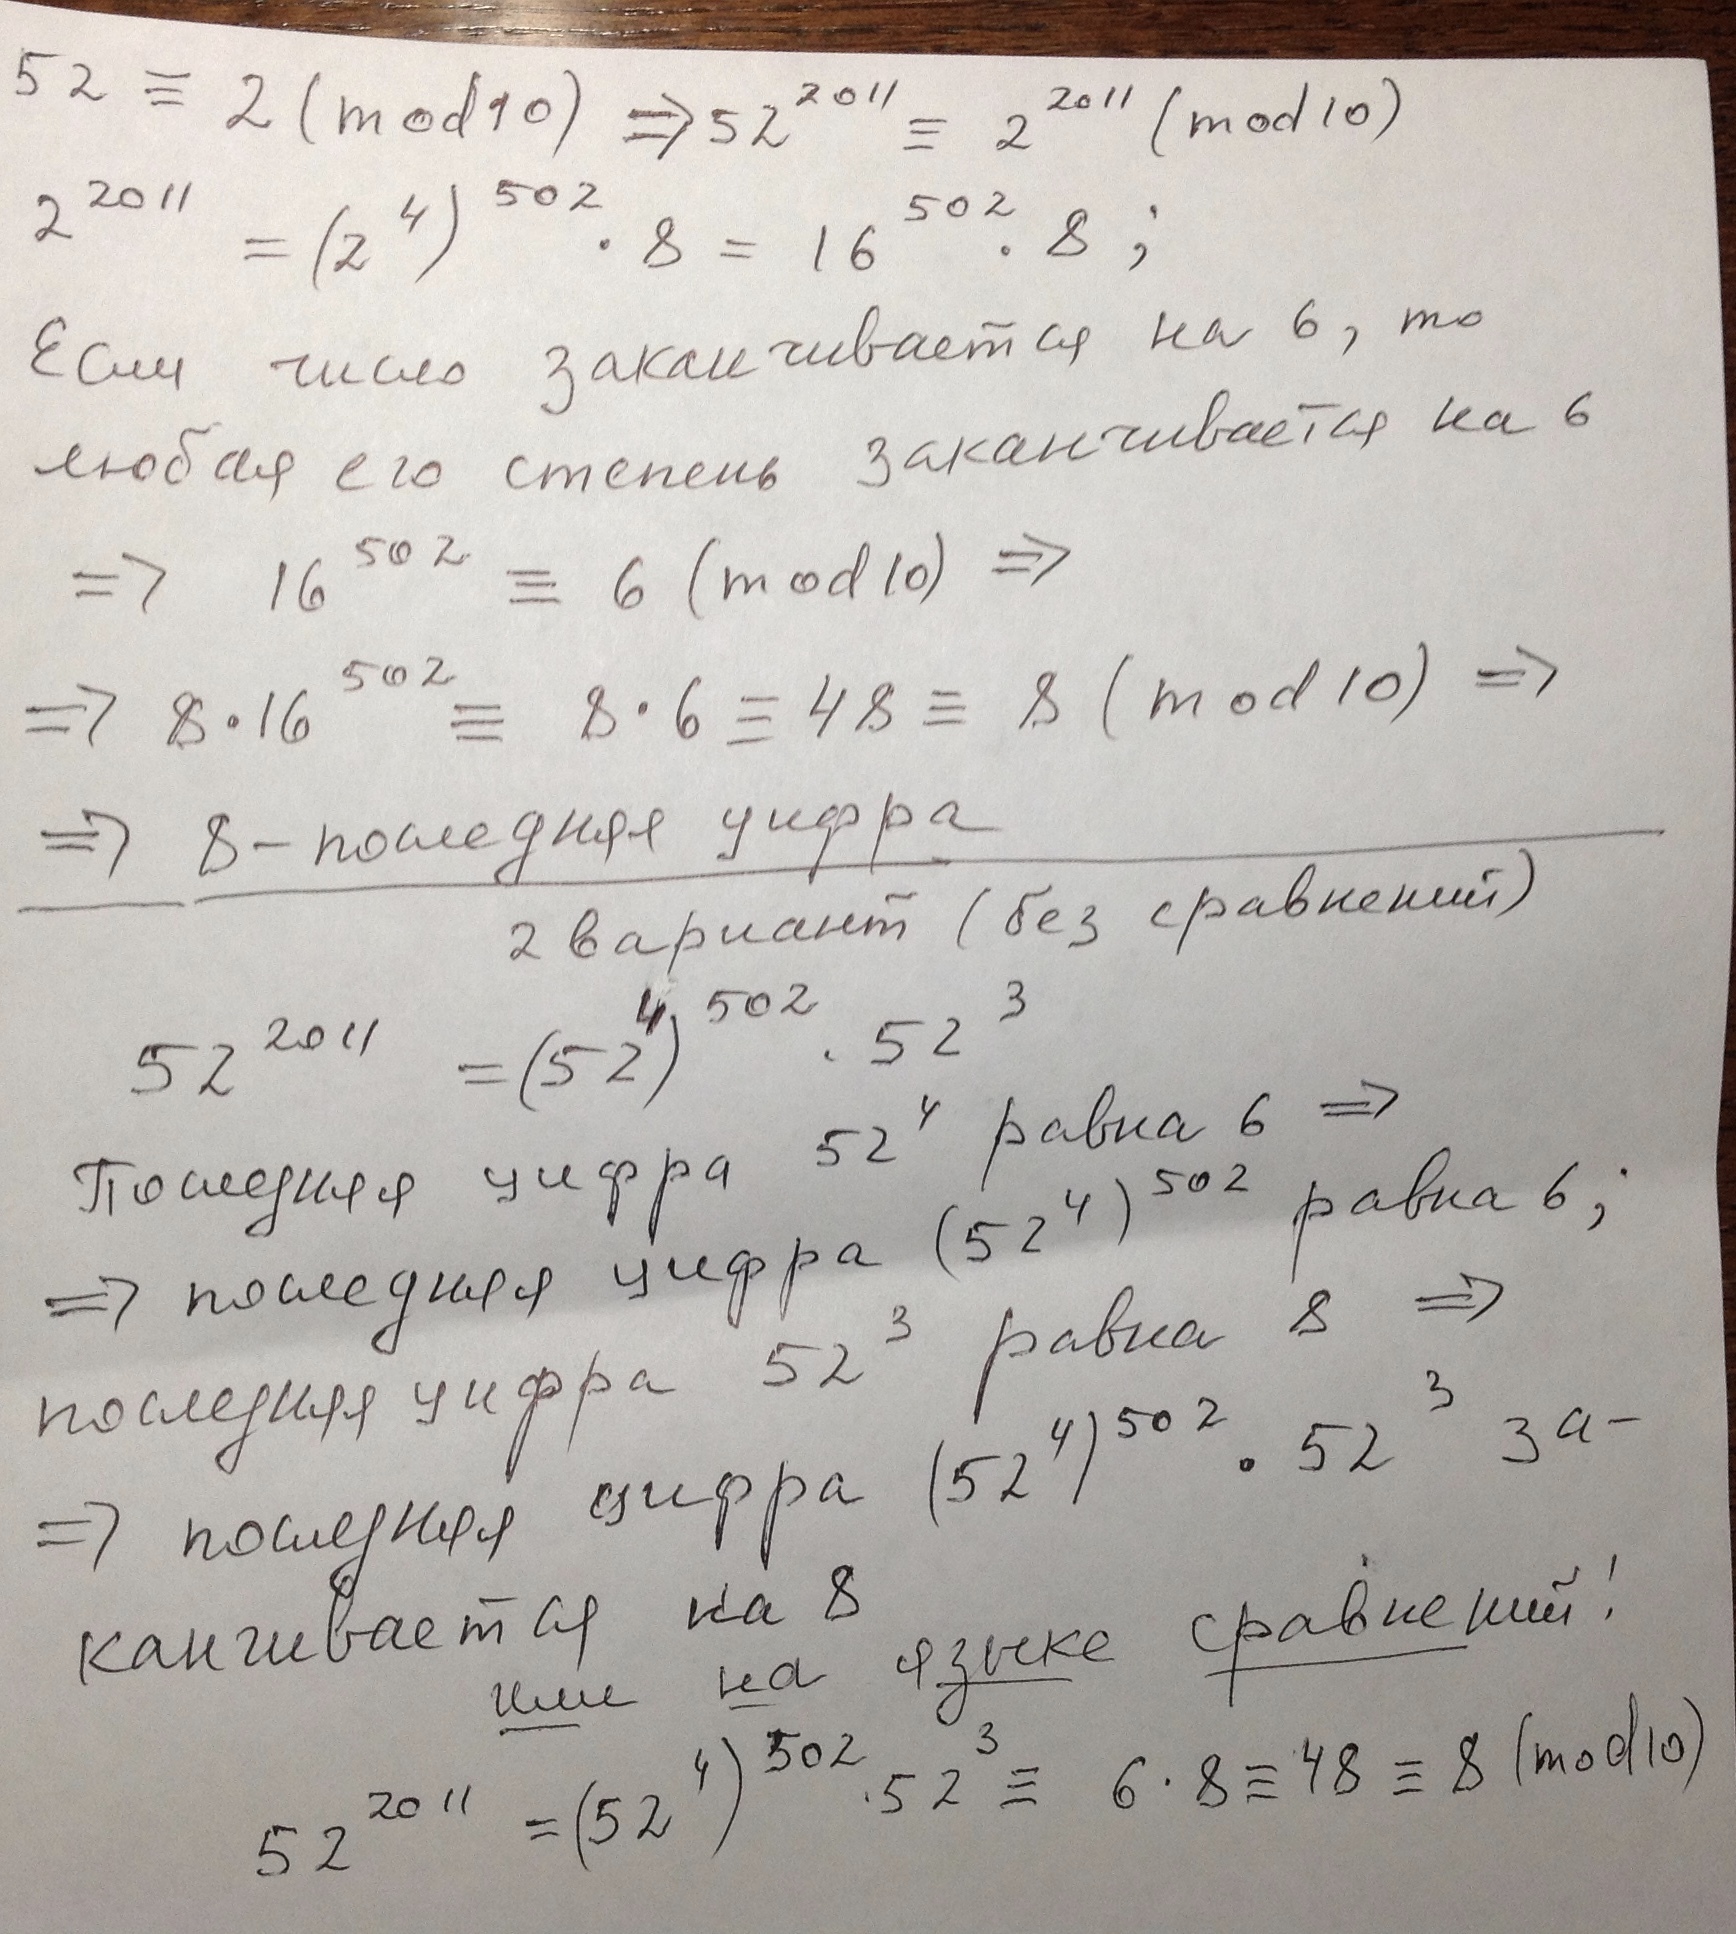 52 ≡ 2 (mod 10) ⇒ 52^2011 ≡ 2^2011 (mod 10)
2^2011 = (2^4)^502 · 8 = 16^502 · 8 ;
Если число заканчивается на 6, то
любая его степень заканчивается на 6
⇒ 16^502 ≡ 6 (mod 10) ⇒
⇒ 8·16^502 ≡ 8·6 ≡ 48 ≡ 8 (mod 10) ⇒
⇒ 8 – последняя цифра
2 вариант (без сравнений)
52^2011 = (52^4)^502 · 52^3
Последняя цифра 52^4 равна 6 ⇒
⇒ последняя цифра (52^4)^502 равна 6 ;
последняя цифра 52^3 равна 8 ⇒
⇒ последняя цифра (52^4)^502 · 52^3 за-
канчивается на 8
или на языке сравнений!
52^2011 = (52^4)^502 · 52^3 ≡ 6·8 ≡ 48 ≡ 8 (mod 10)